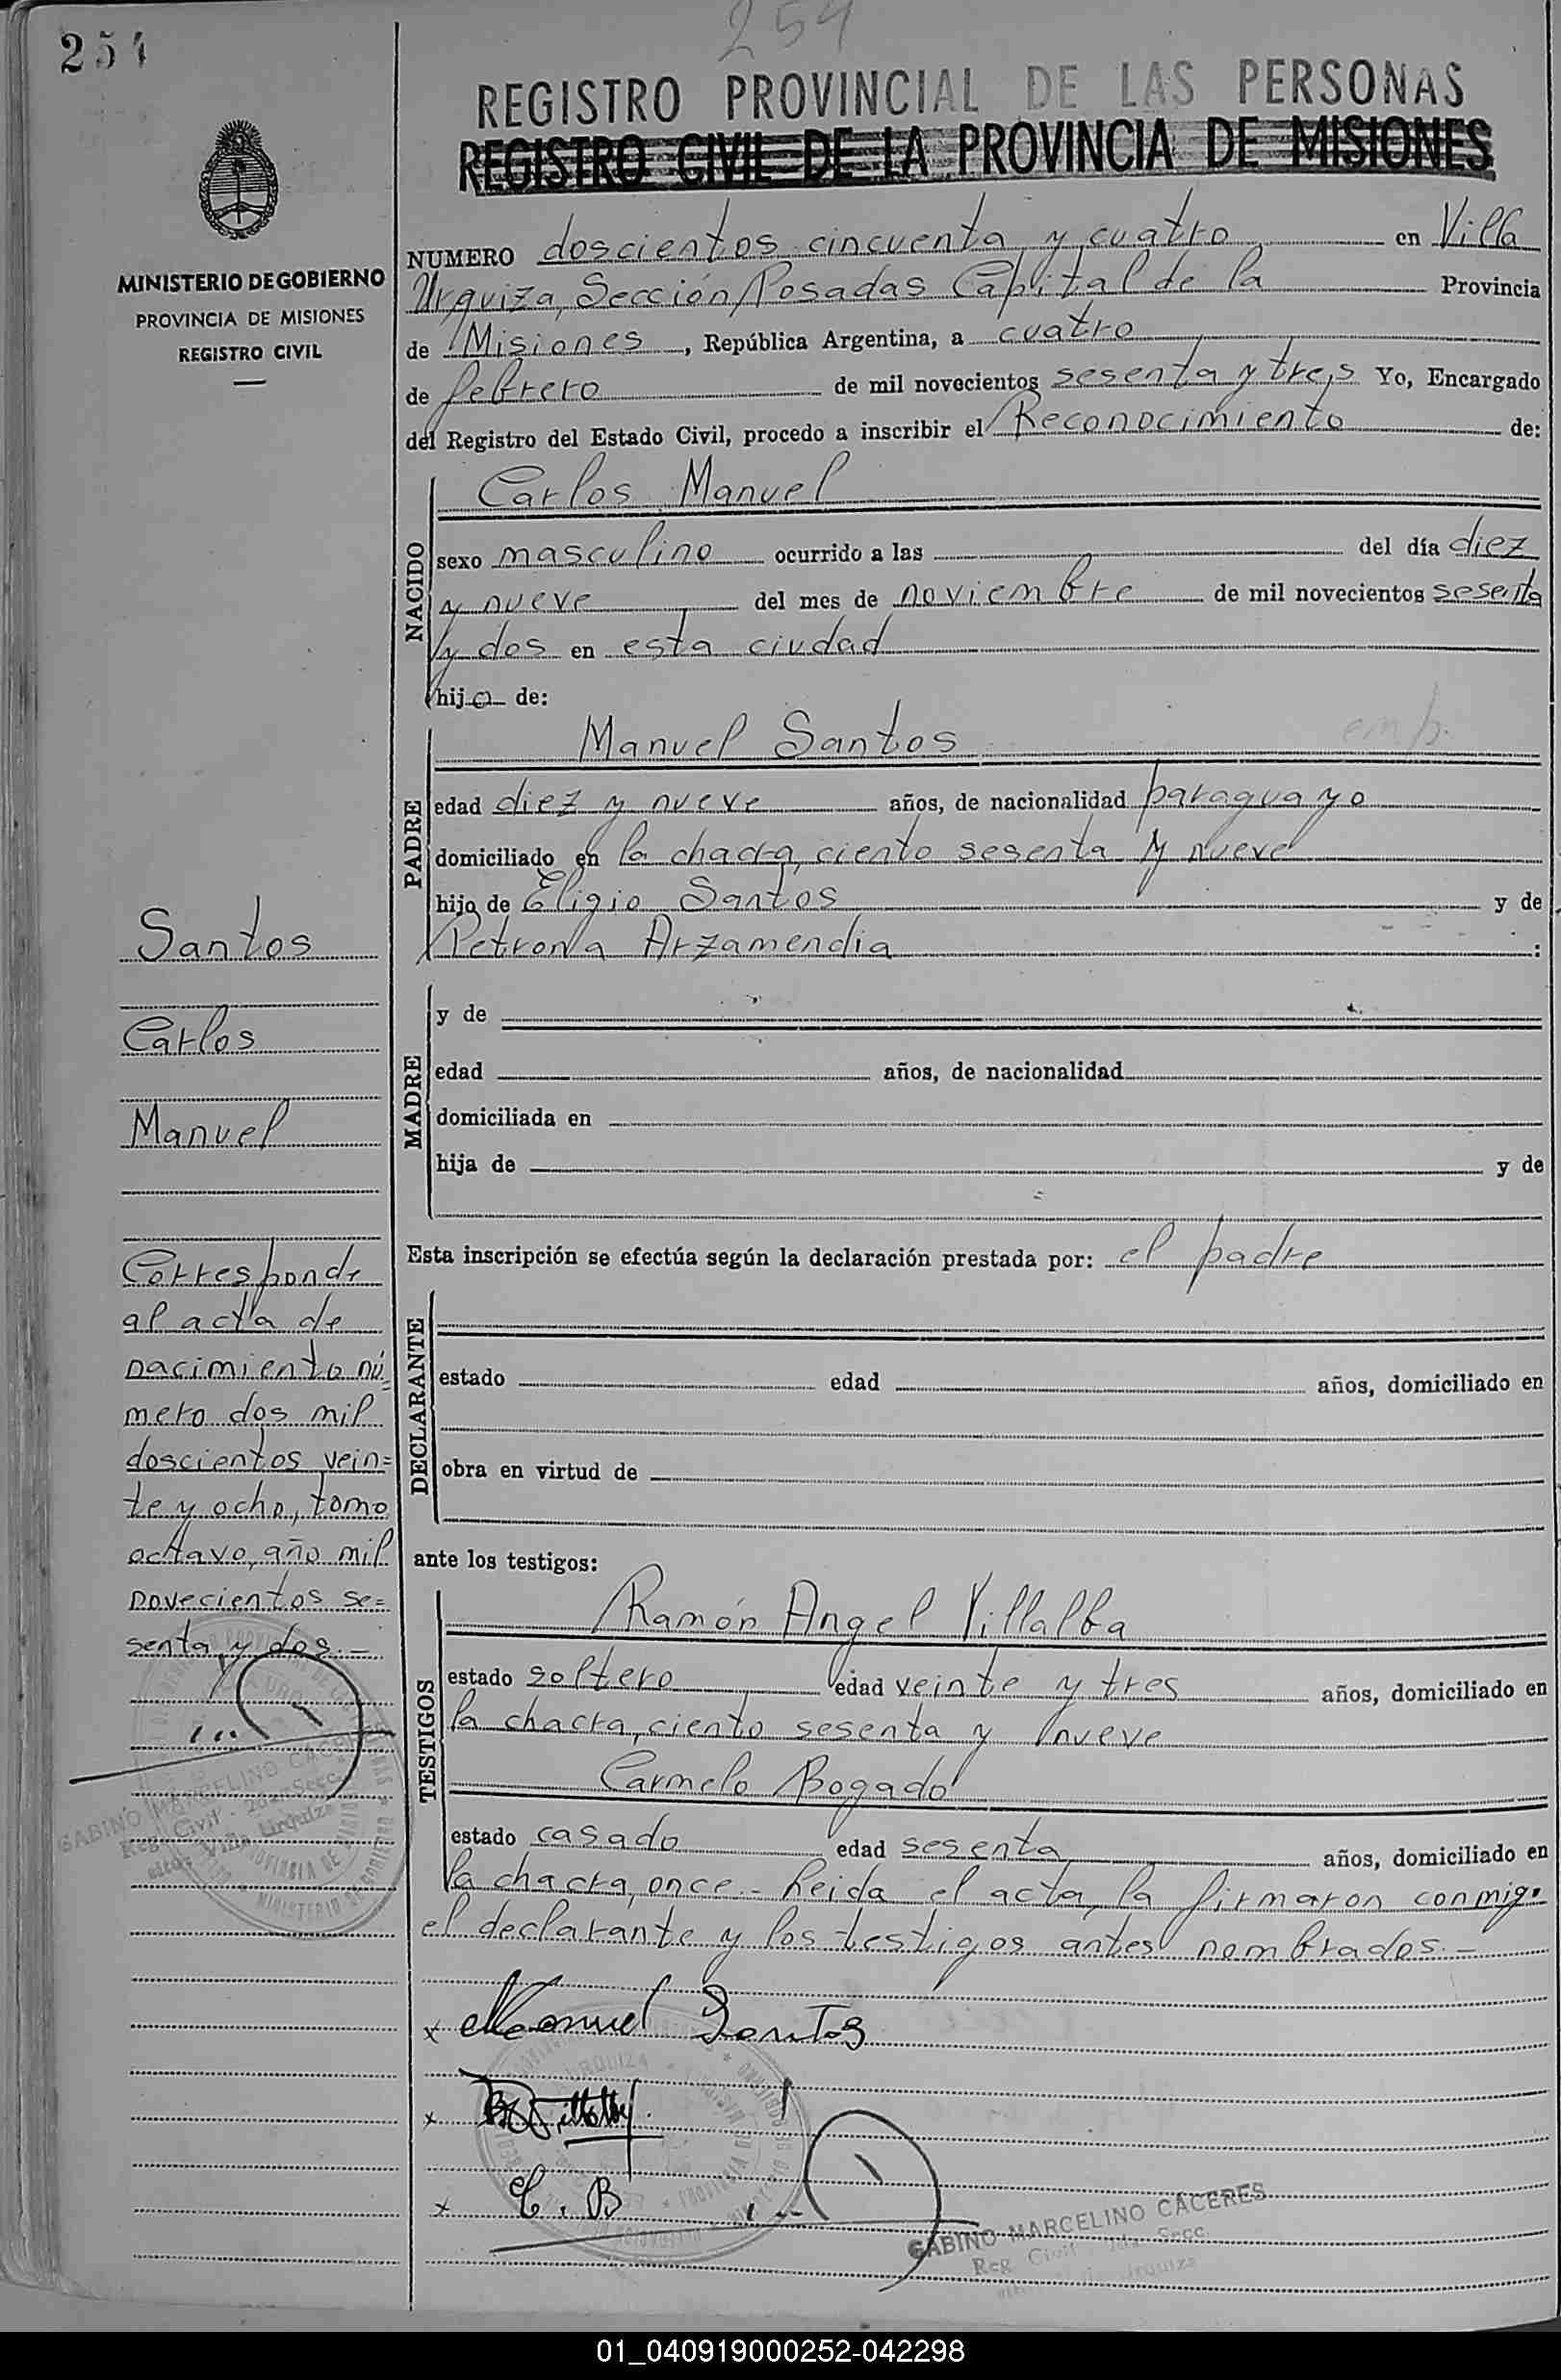 254
254
REGISTRO PROVINCIAL DE LAS PERSONAS
REGISTRO CIVIL DE LA PROVINCIA DE MISIONES
MINISTERIO DE GOBIERNO
PROVINCIA DE MISIONES
REGISTRO CIVIL
NUMERO doscientos cincuenta y cuatro en Villa
Urquiza, Sección Posadas Capital de la Provincia
de Misiones, República Argentina, a cuatro
de febrero de mil novecientos sesenta y tres Yo, Encargado
del Registro del Estado Civil, procedo a inscribir el Reconocimiento de:
NACIDO
Carlos Manuel
sexo masculino ocurrido a las del día diez
y nueve del mes de noviembre de mil novecientos sesenta
y dos en esta ciudad
hijo de:
PADRE
Manuel Santos emp.
edad diez y nueve años, de nacionalidad paraguayo
domiciliado en la chacra, ciento sesenta y nueve
hijo de Eligio Santos y de
Petrona Arzamendia :
MADRE
y de
edad años, de nacionalidad
domiciliada en
hija de y de
Esta inscripción se efectúa según la declaración prestada por: el padre
DECLARANTE
estado edad años, domiciliado en
obra en virtud de
ante los testigos:
TESTIGOS
Ramón Angel Villalba
estado soltero edad veinte y tres años, domiciliado en
la chacra, ciento sesenta y nueve
Carmelo Bogado
estado casado edad sesenta años, domiciliado en
la chacra, once.- Leida el acta, la firmaron conmigo
el declarante y los testigos antes nombrados.-
x Manuel Santos
x
x C. B
GABINO MARCELINO CACERES
Reg. Civil 2da. Secc.
Santos
Carlos
Manuel
Corresponde
al acta de
nacimiento nú=
mero dos mil
doscientos vein=
te y ocho, tomo
octavo, año mil
novecientos se=
senta y dos.-
GABINO MARCELINO CACERES
Reg. Civil - 2da. Secc.
Villa Urquiza
MINISTERIO DE GOBIERNO
01_040919000252-042298